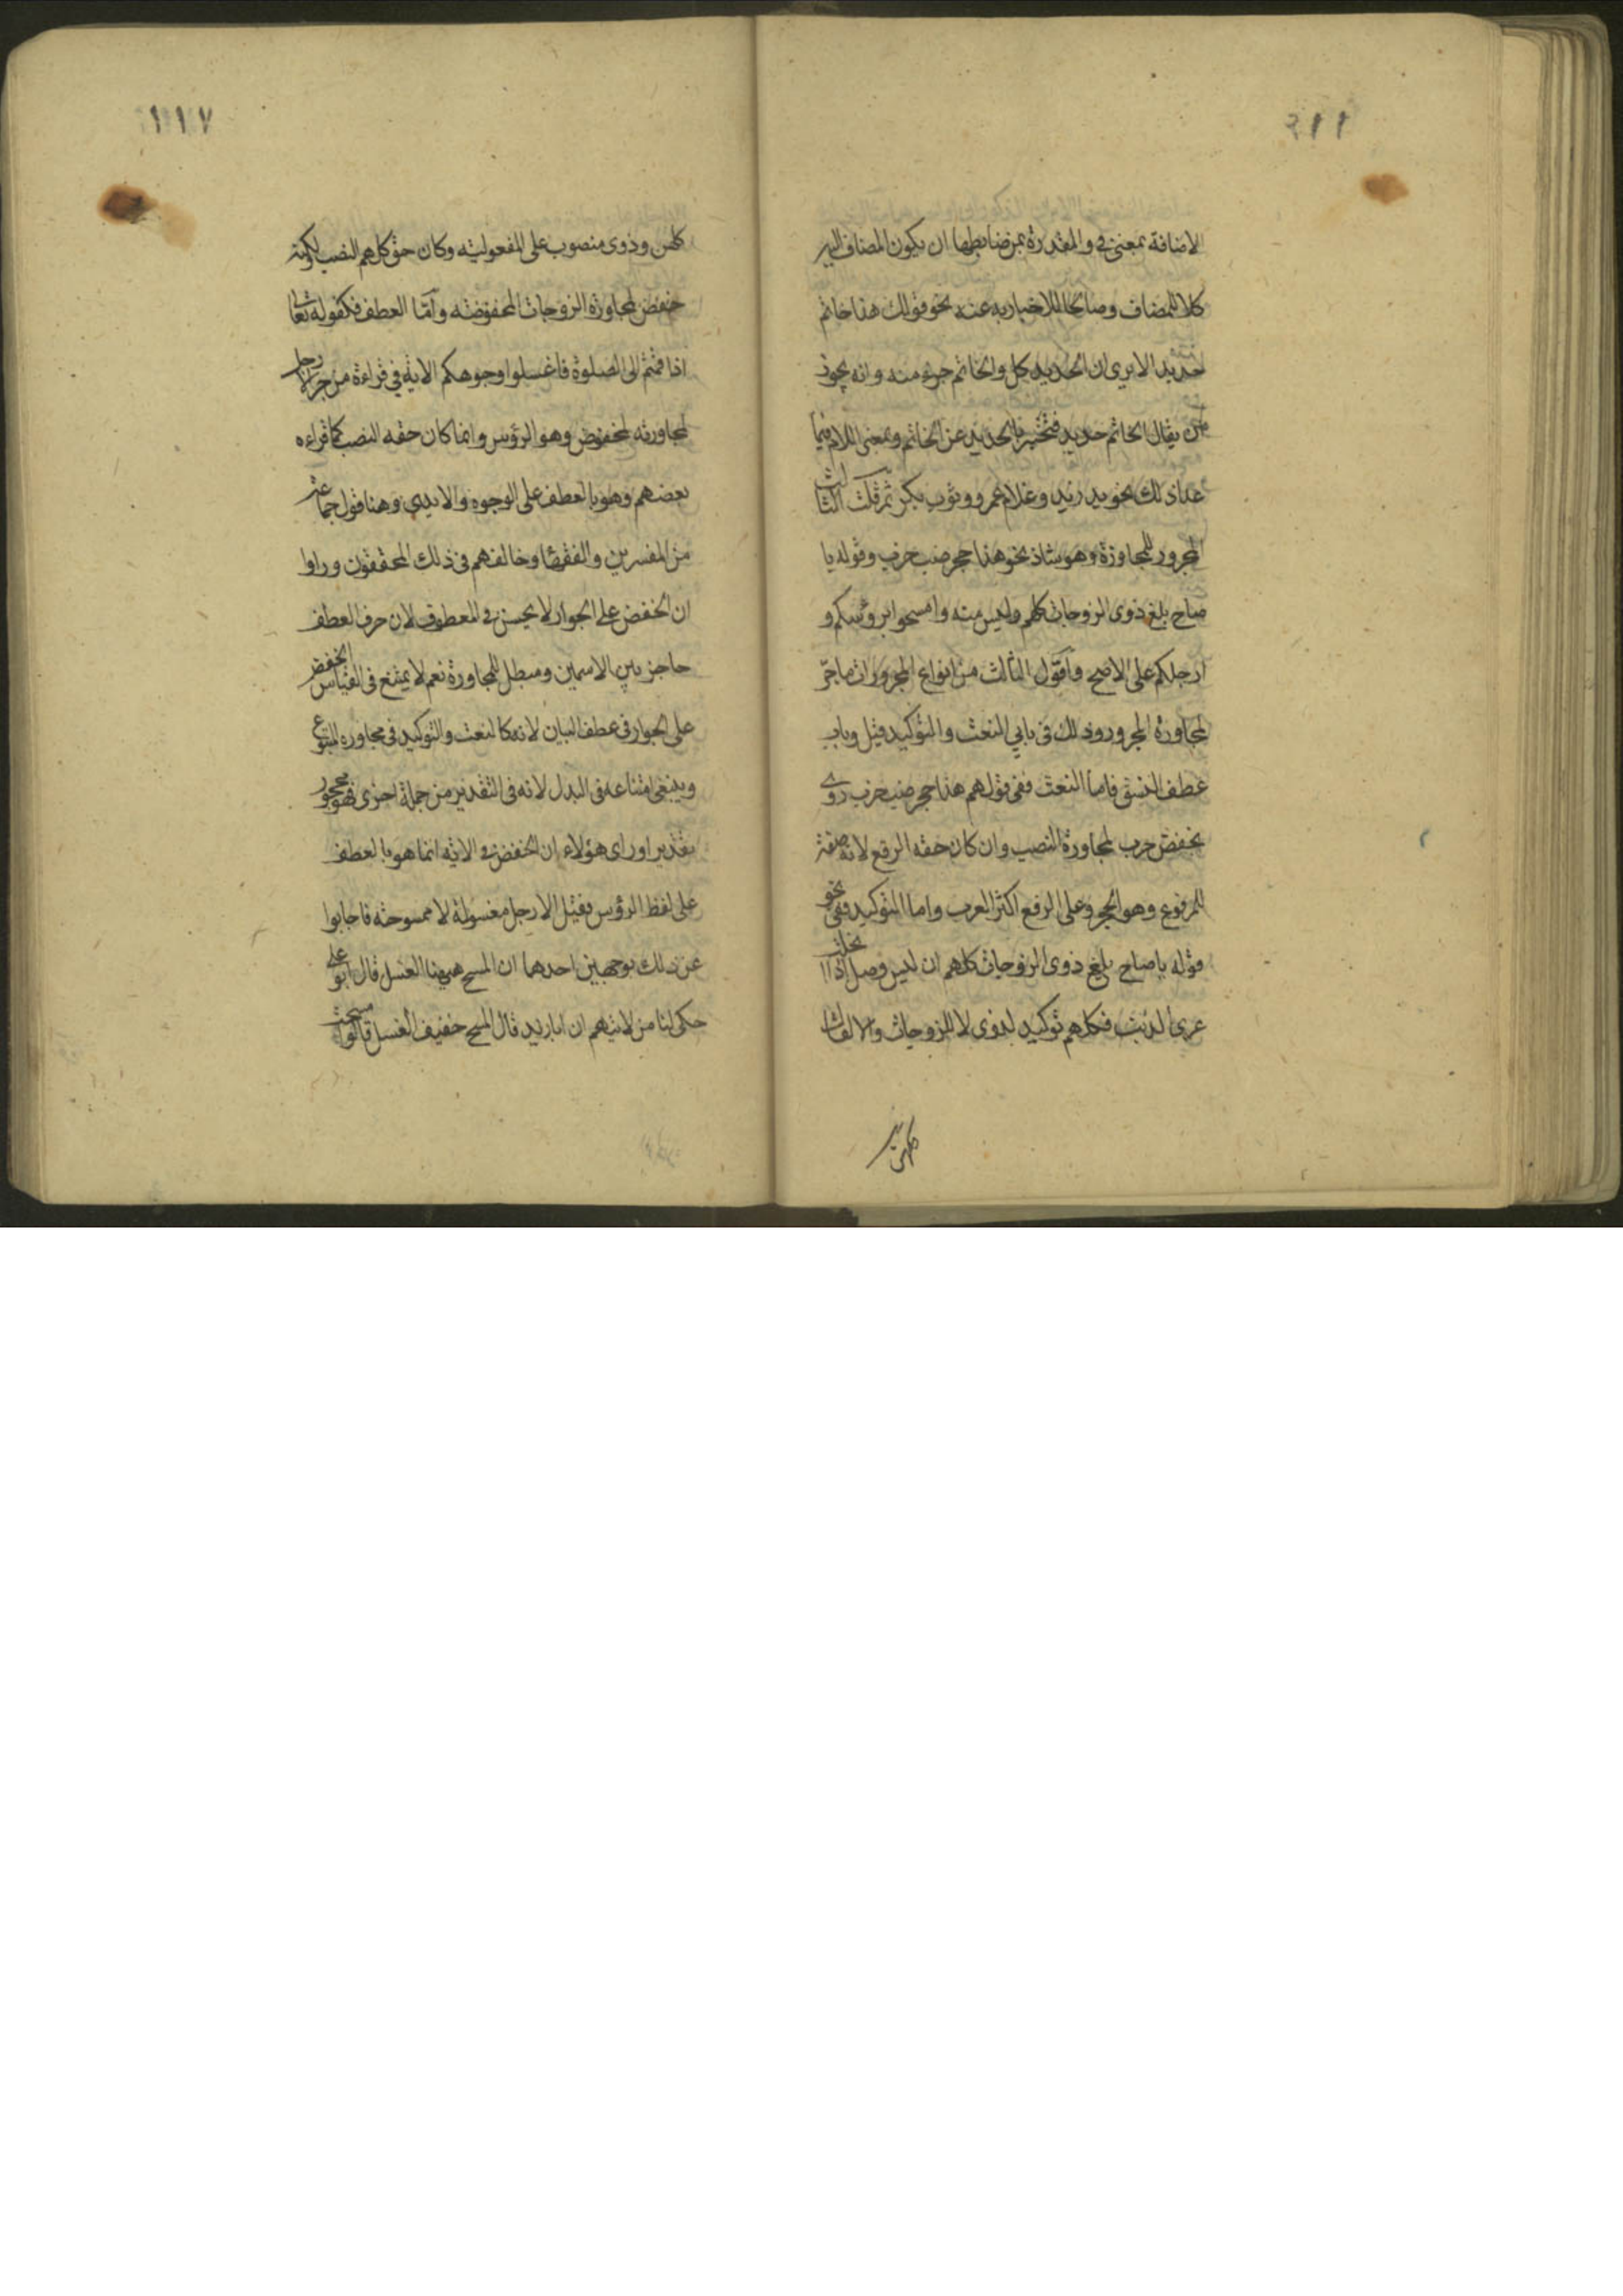 ١١٦
الاضافة بمعنى في والمقدرة بمن ضابطها ان يكون المضاف اليه
كلا للمضاف وصالحا للاخبار به عنه نحو قولك هذا خاتم
حديد الا يرى ان الحديد كل والخاتم جزء منه وانه يجوز
ان يقال الخاتم حديد فتخبر بالحديد عن الخاتم وبمعنى اللام فيما
عدا ذلك نحو يد زيد وغلام عمرو وثوب بكر ثم قلت الثالث
المجرور للمجاورة وهو شاذ نحو هذا جحر ضب خرب وقوله يا
صاح بلغ ذوى الزوجات كلهم وليس منه وامسحوا برؤسكم و
ارجلكم على الاصح واقول الثالث من انواع المجرورات ما جر
لمجاورة المجرور وذلك فى بابي النعت والتوكيد قيل وباب
عطف النسق فاما النعت ففى قولهم هذا جحر ضب خرب روى
بخفض خرب لمجاورة الضب وان كان حقه الرفع لانه صفة
للمرفوع وهو الجحر وعلى الرفع اكثر العرب واما التوكيد ففى نحو
قوله يا صاح بلغ ذوى الزوجات كلهم ان ليس وصل اذا انحلت
عرى الذنب فكلهم توكيد لذوى لا للزوجات والا لقال
كلهن
١١٧
كلهن وذوى منصوب على المفعولية وكان حق كلهم النصب لكنه
خفض لمجاورة الزوجات المخفوضة وامّا العطف فكقوله تعالى
اذا قمتم الى الصلوة فاغسلوا وجوهكم الاية في قراءة من جر الارجل
لمجاورته لمخفوض وهو الرؤس وانما كان حقه النصب كما قراءه
بعضهم وهو بالعطف على الوجوه والايدى وهذا قول جماعة
من المفسرين والفقهاء وخالفهم فى ذلك المحققون وراوا
ان الخفض على الجوار لا يحسن في المعطوف لان حرف العطف
حاجز بين الاسمين ومبطل للمجاورة نعم لا يمتنع فى القياس الخفض
على الجوار فى عطف البيان لانه كالنعت والتوكيد فى مجاورة المتبوع
وينبغى امتناعه فى البدل لانه فى التقدير من جملة اخرى فهو محجور
تقديرا وراى هؤلاء ان الخفض في الاية انما هو بالعطف
على لفظ الرؤس فقيل الارجل مغسولة لا ممسوحة فاجابوا
عن ذلك بوجهين احدهما ان المسح ههنا الغسل قال ابو على
حكى لنا من لا يتهم ان ابا زيد قال المسح خفيف الغسل قالوا مسحت